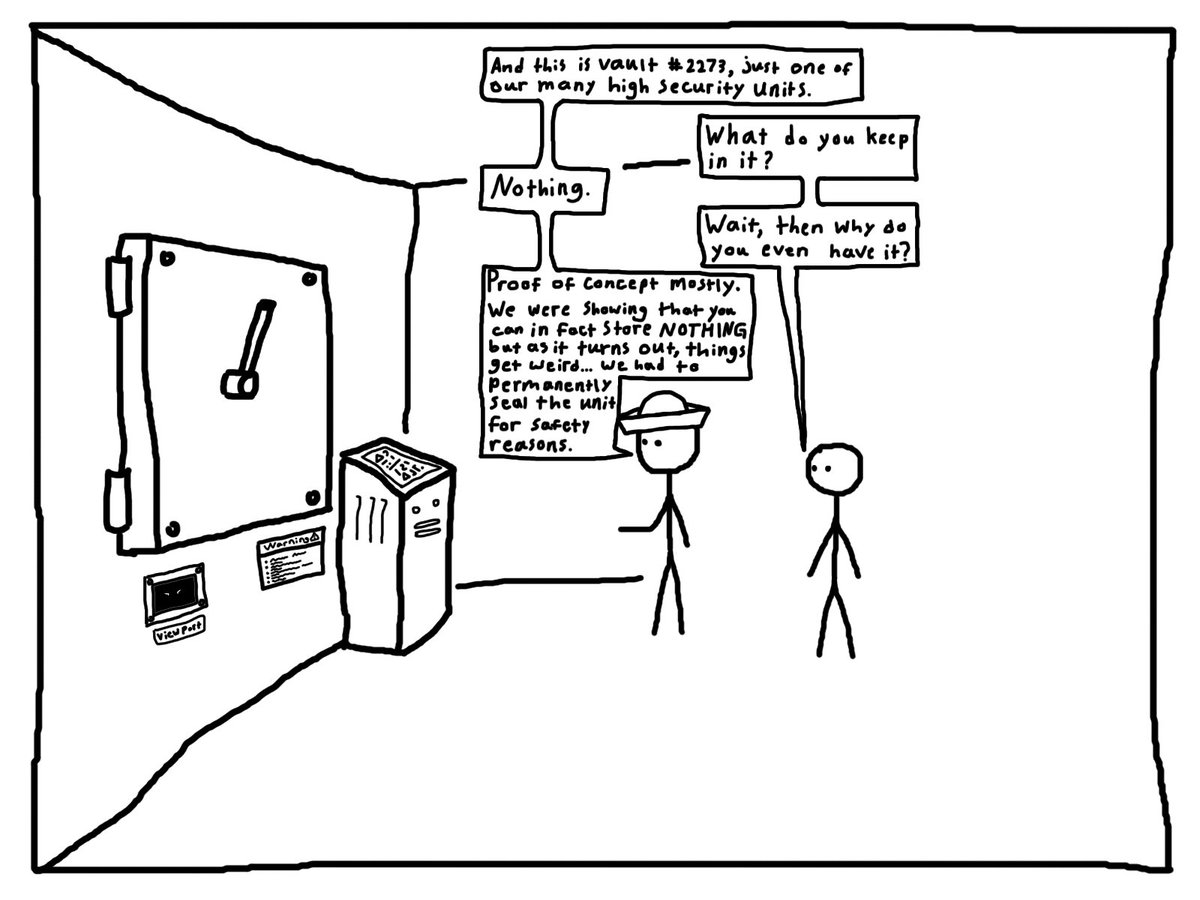 And this is vault #2273, just one of
our many high security units.
What do you keep
in it?
Nothing.
Wait, then why do
you even have it?
Proof of concept mostly.
We were showing that you
can in fact store NOTHING
but as it turns out, things
get weird... we had to
permanently
seal the unit
for safety
reasons.
Warning
View Port